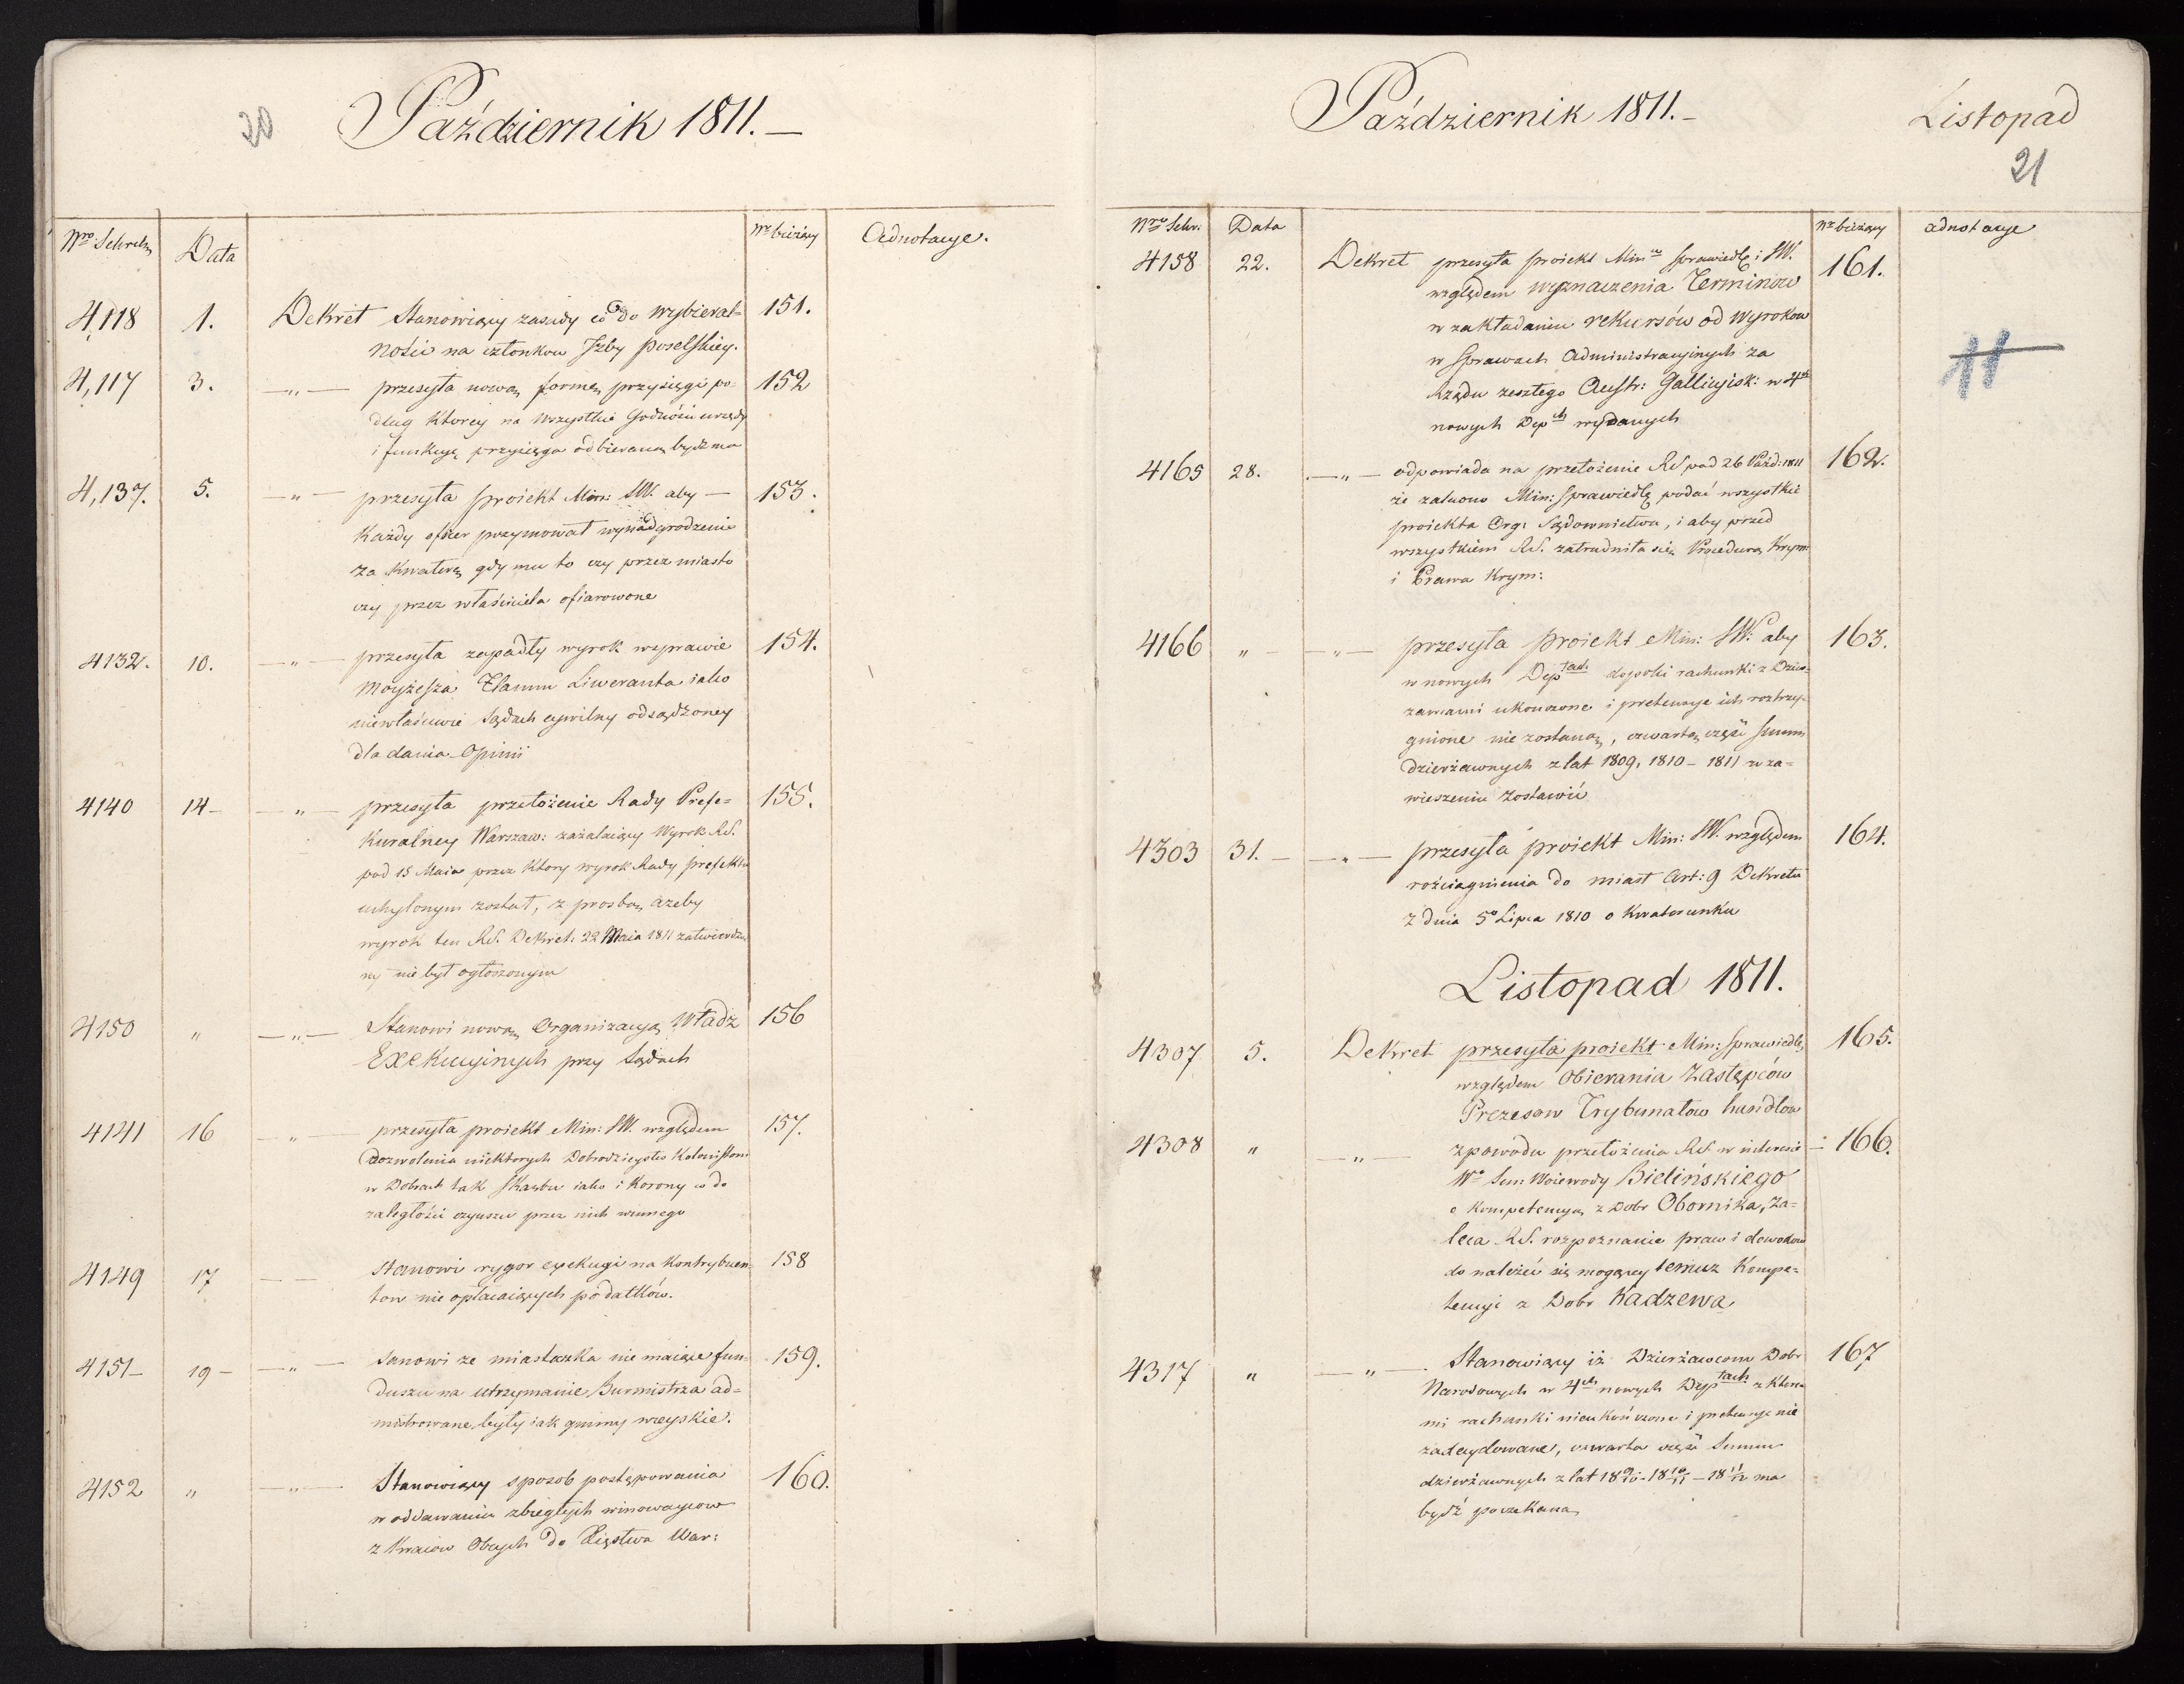 20
Październik 1811. —
Nro Sekreta Data Nr bieżący Adnotacye.
4,118 1. Dekret Stanowiący zasady co do wybieral= 151.
ności na członkow Izby poselskiey.
4,117 3. —„— przesyła nową formę przysięgi po= 152
dług ktorey na wszystkie Godności urzędy
i funkcye przysięga odbierana bydź ma
4,137. 5. —„— przesyła proiekt Min: SW. aby — 153.
każdy oficer przymował wynadgrodzenie
za kwaterę gdy mu to czy przez miasto
czy przez właściciela ofiarowone
4132. 10. —„— przesyła zapadły wyrok wsprawie 154.
Moyżesza Liweranta iako
niewłaściwie Sądach cywilny odsądzoney
dla dania Opinii
4140 14 — —„— przesyła przełożenie Rady Prefe= 155.
kturalney Warszaw: zażalaiący Wyrok RS.
pod 15 Maia przez ktory wyrok Rady prefektu
uchylonym został, z prosbą azeby
wyrok ten RS. Dekret: 22 Maia 1811 zatwierdzo
ny nie był ogłoszonym
4150 „ —„— Stanowi nową Organizacyą Władz 156
Exekucyinych przy Sądach
4141 16 —„— przesyła proiekt Min: SW. względem 157.
dozwolenia niektorych Dobrodzieystw Kolonistom
w Dobrach tak Skarbu iako i Korony co do
zaległości czynszu przez nich winnego
4149 17 — — stanowi rygor exekucyi na kontrybuen= 158
tow nie opłacaiących podatków.
4151 — 19 — —„— sanowi ze miastaczka nie maiące fun= 159.
duszu na utrzymanie Burmistrza ad=
mistrowane były iak gminy wieyskie.
4152 „ —„— Stanowiący sposob postępowania 160.
w oddawaniu zbiegłych winowaycow
z kraiow Obcych do Xięstwa War:
Październik 1811. — Listopad
21
Nro Sekr: Data Nr bieżący adnotacye
4158 22. Dekret przesyła proiekt Minra Sprawiedlę i SW. 161.
względem wyznaczenia Terminow
w zakładaniu rekursów od Wyrokow
w Sprawach Administracyinych za 11
Rządu zeszłego Austr: Gallicyisk: w 4ch
nowych Depch wydanych
4165 28. —„— odpowiada na przełożenie RS pod 26 Paźd: 1811 162.
że zalecono Min: Sprawiedlę podać wszystkie
proiekta Org: Sądownictwa, i aby przed
wszystkiem RS. zatrudniła się Procedurą Krym:
i Prawa Krym:
4166 „ — —„— przesyła proiekt Min: SW: aby 163.
w nowych Deptach dopoki rachunki z Dzier=
zawcami ukonczone i pretensye ich roztrzy=
gnione nie zostaną, czwartą część Summ
dzierżawnych z lat 1809, 1810 — 1811 w za=
wieszeniu zostawić
4303 31. — —„— przesyła proiekt Min: SW. względem 164.
rościągnienia do miast Art: 9 Dekretu
z dnia 5o Lipca 1810 o kwaterunku
Listopad 1811.
4307 5. Dekret przesyła proiekt Min: Sprawiedlę 165.
względem Obierania Zastępców
Prezesow Trybunałow handlow
4308 „ —„— zpowodu przełożenia RS. w interesie — 166.
Wo Sen: Woiewody Bielińskiego
o kompetencyą z Dobr Obornika, Za=
leca RS. rozpoznanie praw i dowodow
do należeć się mogącey temuz Kompe=
tencyi z Dobr Kadzewa
4317 „ —„— Stanowiący iż Dzierżawcom Dobr 167
Narodowych w 4ch nowych Deptach z ktore=
mi rachunki nieukończone i pretensye nie
zadecydowane, czwarta część Summ
dzierżawnych z lat 18 9/10 - 18 10/11 — 18 11/12 ma
bydź poczekaną